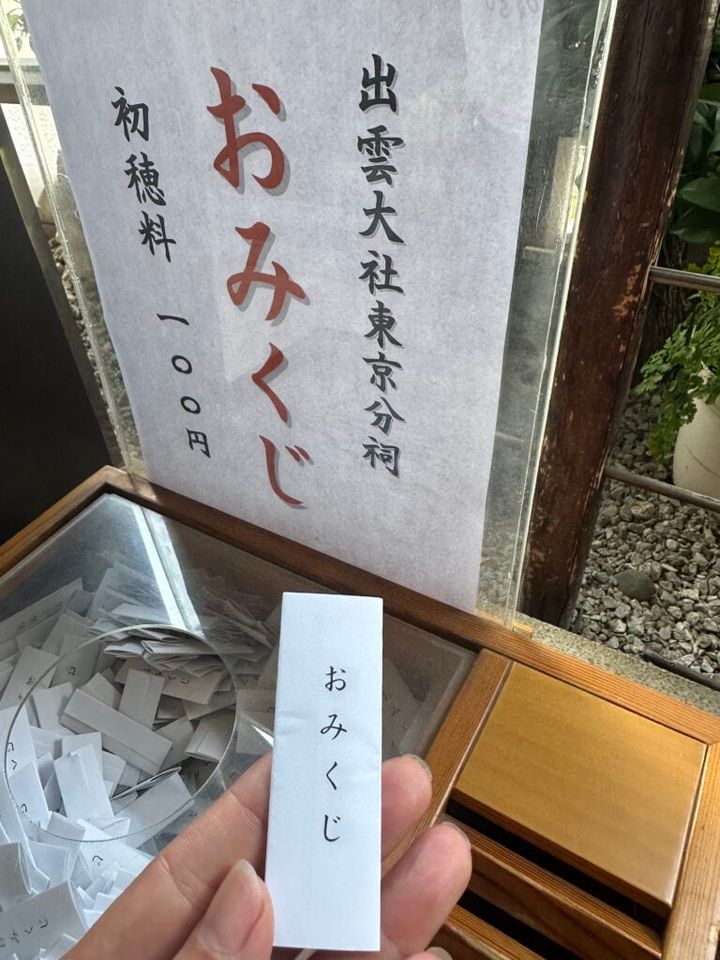 出雲大社東京分祠
おみくじ
初穂料 一〇〇円
おみくじ